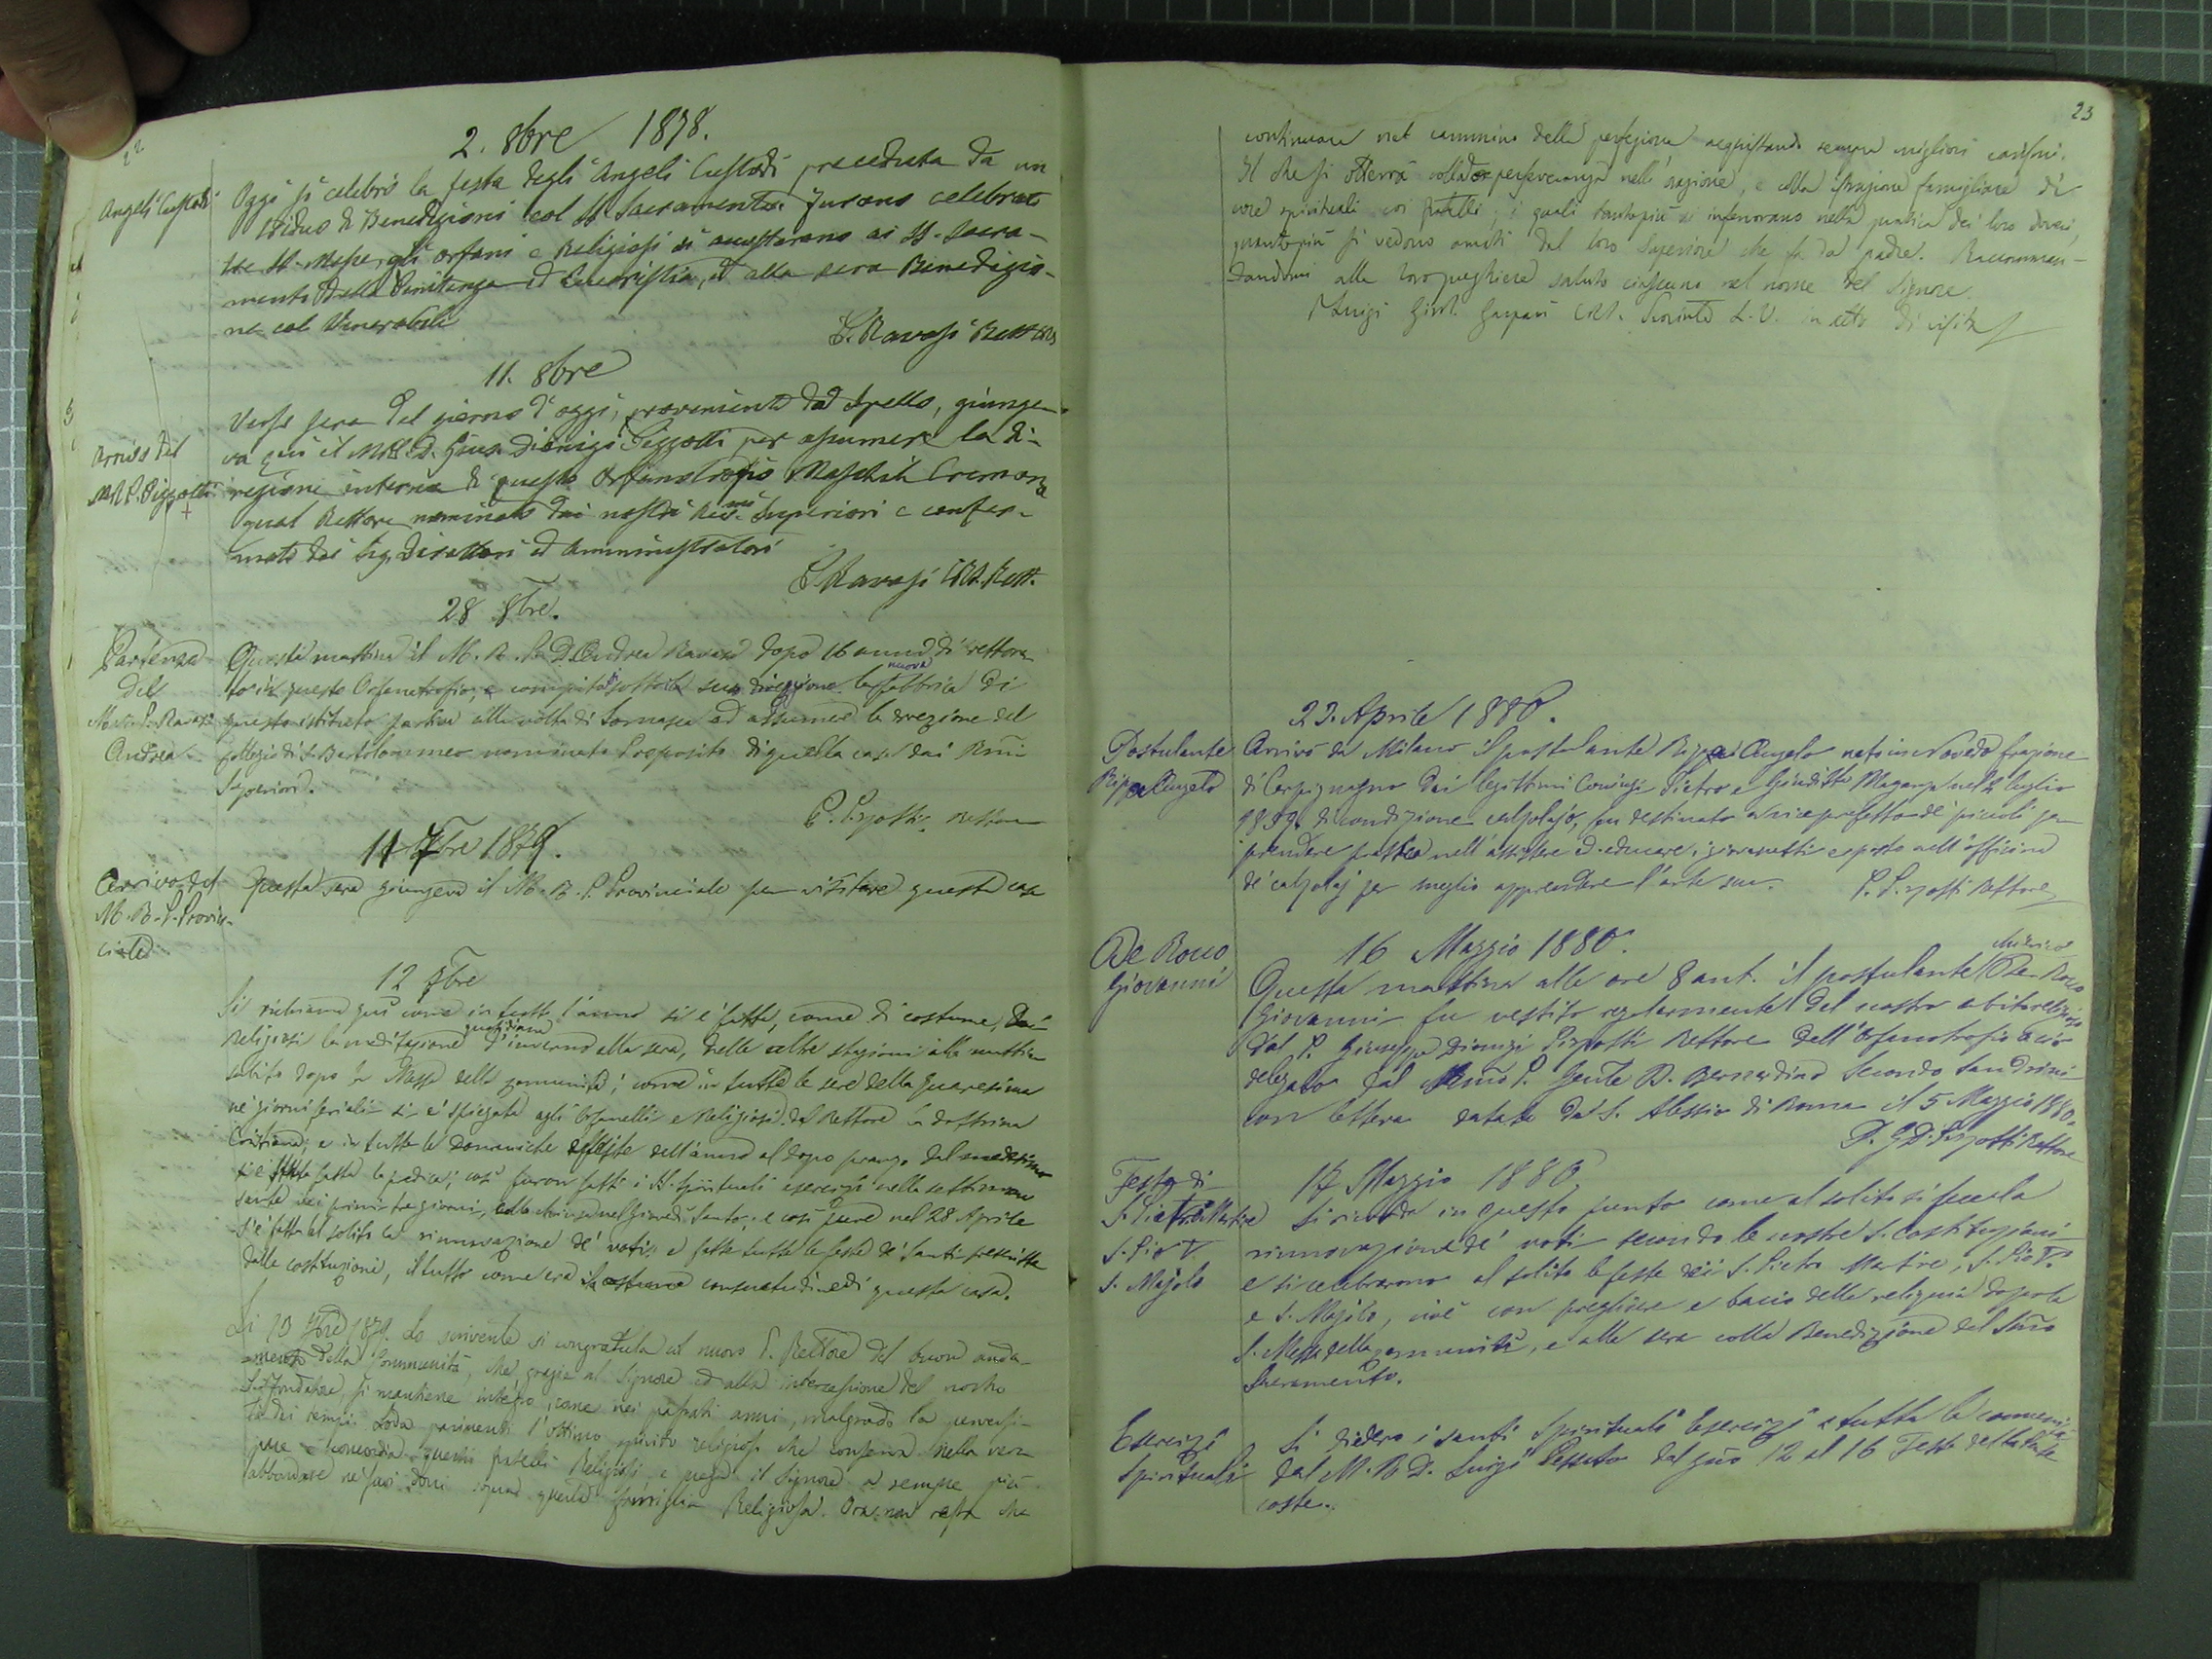 22
2. 8bre 1878.
Angeli Custodi
Oggi si celebrò la festa degli Angeli Custodi preceduta da un
triduo di Benedizioni col SS. Sacramento. Furono celebrate
tre SS. Messe, gli orfani e Religiosi si accostarono ai SS. Sacra-
mento della Penitenza ed Eucaristia, ed alla sera Benedizio-
ne col Venerabile
Ravasi Rett CRS
11. 8bre
Arrivo del
M.R.P. Pizzotti
Verso sera del giorno d'oggi, proveniente da Spello, giunge-
va qui il MRP. D. Gius. Dionigi Pizzotti per assumere la di-
rezione interna di questo Orfanotrofio Maschile Cremona
qual Rettore nominato dai nostri Rev.mi Superiori e confer-
mato dai Sig. Direttori ed Amministratori
Ravasi CRS. Rett.
28 8bre.
Partenza
del
M. R. P. Ravasi
Andrea
Questa mattina il M. R. P. D. Andrea Ravasi dopo 16 anni di rettora-
to in questo Orfanotrofio, e compita sotto la sua direzione la nuova fabbrica di
questo istituto partiva alla volta di Somasca ad assumere la direzione del
collegio di S. Bartolommeo nominato Preposito di quella casa dai Rmi
Superiori.
P. Pizzotti Rettore
11 7bre 1879.
Arrivo del
M. R. P. Provin-
ciale
Questa sera giungeva il M. R. P. Provinciale per visitare questa casa
12 7bre
Si richiama qui come in tutto l'anno si è fatta, come di costume, dai
Religiosi la meditazione quotidiana d'inverno alla sera, nelle altre stagioni alla mattina
subito dopo la Messa della comunità; come in tutte le sere della Quaresima
ne' giorni feriali si è spiegata agli Orfanelli e Religiosi dal Rettore la dottrina
Cristiana; e in tutte le Domeniche e feste dell'anno al dopo pranzo dal medesimo
si è fatta la predica; così furon fatti i SS. Spirituali esercizi nella settimana
santa nei primi tre giorni, colla chiusa nel Giovedì Santo; e così pure nel 28 Aprile
s'è fatta al solito la rinnovazione de' voti; e fatte tutte le feste de' Santi prescritte
dalle costituzioni, il tutto come era consuetudine di questa casa.
Li 13 7bre 1879. Lo scrivente si congratula col nuovo P. Rettore del buon anda-
mento della Communità, che, grazie al Signore ed alla intercessione del nostro
S. Fondatore, si mantiene integro, come nei passati anni, malgrado la perversi-
tà dei tempi. Loda parimenti l'ottimo spirito religioso che conserva nella vera
pace e concordia questi fratelli Religiosi, e prega il Signore a sempre più
abbondare ne' suoi doni sopra questa famiglia Religiosa. Ora non resta che
23
continuare nel cammino della perfezione acquistando sempre migliori carismi.
Il che si otterrà colla perseveranza nell'orazione, e colla istruzione famigliare di
cose spirituali coi fratelli, i quali tantopiù si infervorano nella pratica dei loro doveri,
quantopiù si vedono amati dal loro Superiore che fa da padre. Raccoman-
dandomi alle loro preghiere saluto ciascuno nel nome del Signore.
Luigi Girol. Gaspari CRS. L. V. in atto di visita
22. Aprile 1880.
Postulante
Rippa Angelo
Arrivò da Milano il postulante Rippa Angelo nato in frazione
di Carpignano dai legittimi Coniugi Pietro e Giuditta nel 2 luglio
1859, di condizione calzolajo, fu destinato a viceprefetto de' piccoli per
prendere pratica nell'assistere ed educare i giovanetti e posto nell'officina
de' calzolaj per meglio apprendere l'arte sua. P. Pizzotti Rettore
De Rocco
Giovanni
16 Maggio 1880.
Questa mattina alle ore 8 ant. il postulante De Rocco
Giovanni fu vestito regolarmente del nostro abito religioso
dal P. Giuseppe Dionigi Pizzotti Rettore dell'Orfanotrofio a ciò
delegato dal Rmo P. Gente D. Bernardino Secondo Sandrini
con lettera datata da S. Alessio di Roma il 5 Maggio 1880.
P. G. D. Pizzotti Rettore
Festa di
S. Pietro Martire
S. Pio V
S. Majolo
17 Maggio 1880.
Si ricorda in questo punto come al solito si fece la
rinnovazione de' voti secondo le nostre S. Costituzioni
e si celebrarono al solito le feste di S. Pietro Martire, S. Pio V.
e S. Majolo, cioè con preghiere e bacio della reliquia dopo la
S. Messa della communità, e alla sera colla Benedizione del Smo
Sacramento.
Esercizi
Spirituali
Si diedero i santi Spirituali Esercizi a tutta la comunità
dal M. R. D. Luigi dal gno 12 al 16 Festa della Pente
coste.